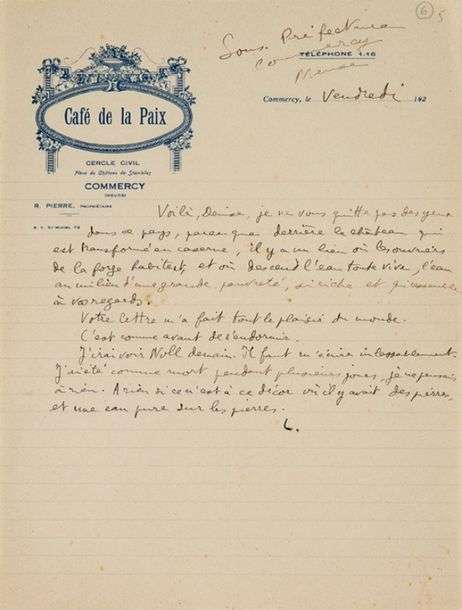 6 5
Sous Préfecture
TÉLÉPHONE 1.16
Commercy
Meuse
Café de la Paix
Commercy, le Vendredi 192
CERCLE CIVIL
Place du Château de Stanislas
COMMERCY
(MEUSE)
R. PIERRE, PROPRIÉTAIRE
Voilà, Denise, je ne vous quitte pas des yeux
dans ce pays, parce que derrière le château qui
est transformé en caserne, il y a un lieu où les ouvriers
de la forge habitent, et où descend l'eau toute vive, l'eau
au milieu d'une grande pauvreté, si riche et qui ressemble
à vos regards.
Votre lettre m'a fait tout le plaisir du monde.
C'est comme avant de s'endormir.
J'irai voir Noll demain. Il faut m'écrire inlassablement.
J'ai été comme mort pendant plusieurs jours, je ne pensais
à rien. A rien si ce n'est à ce décor où il y avait des pierres,
et une eau pure sur les pierres.
L.